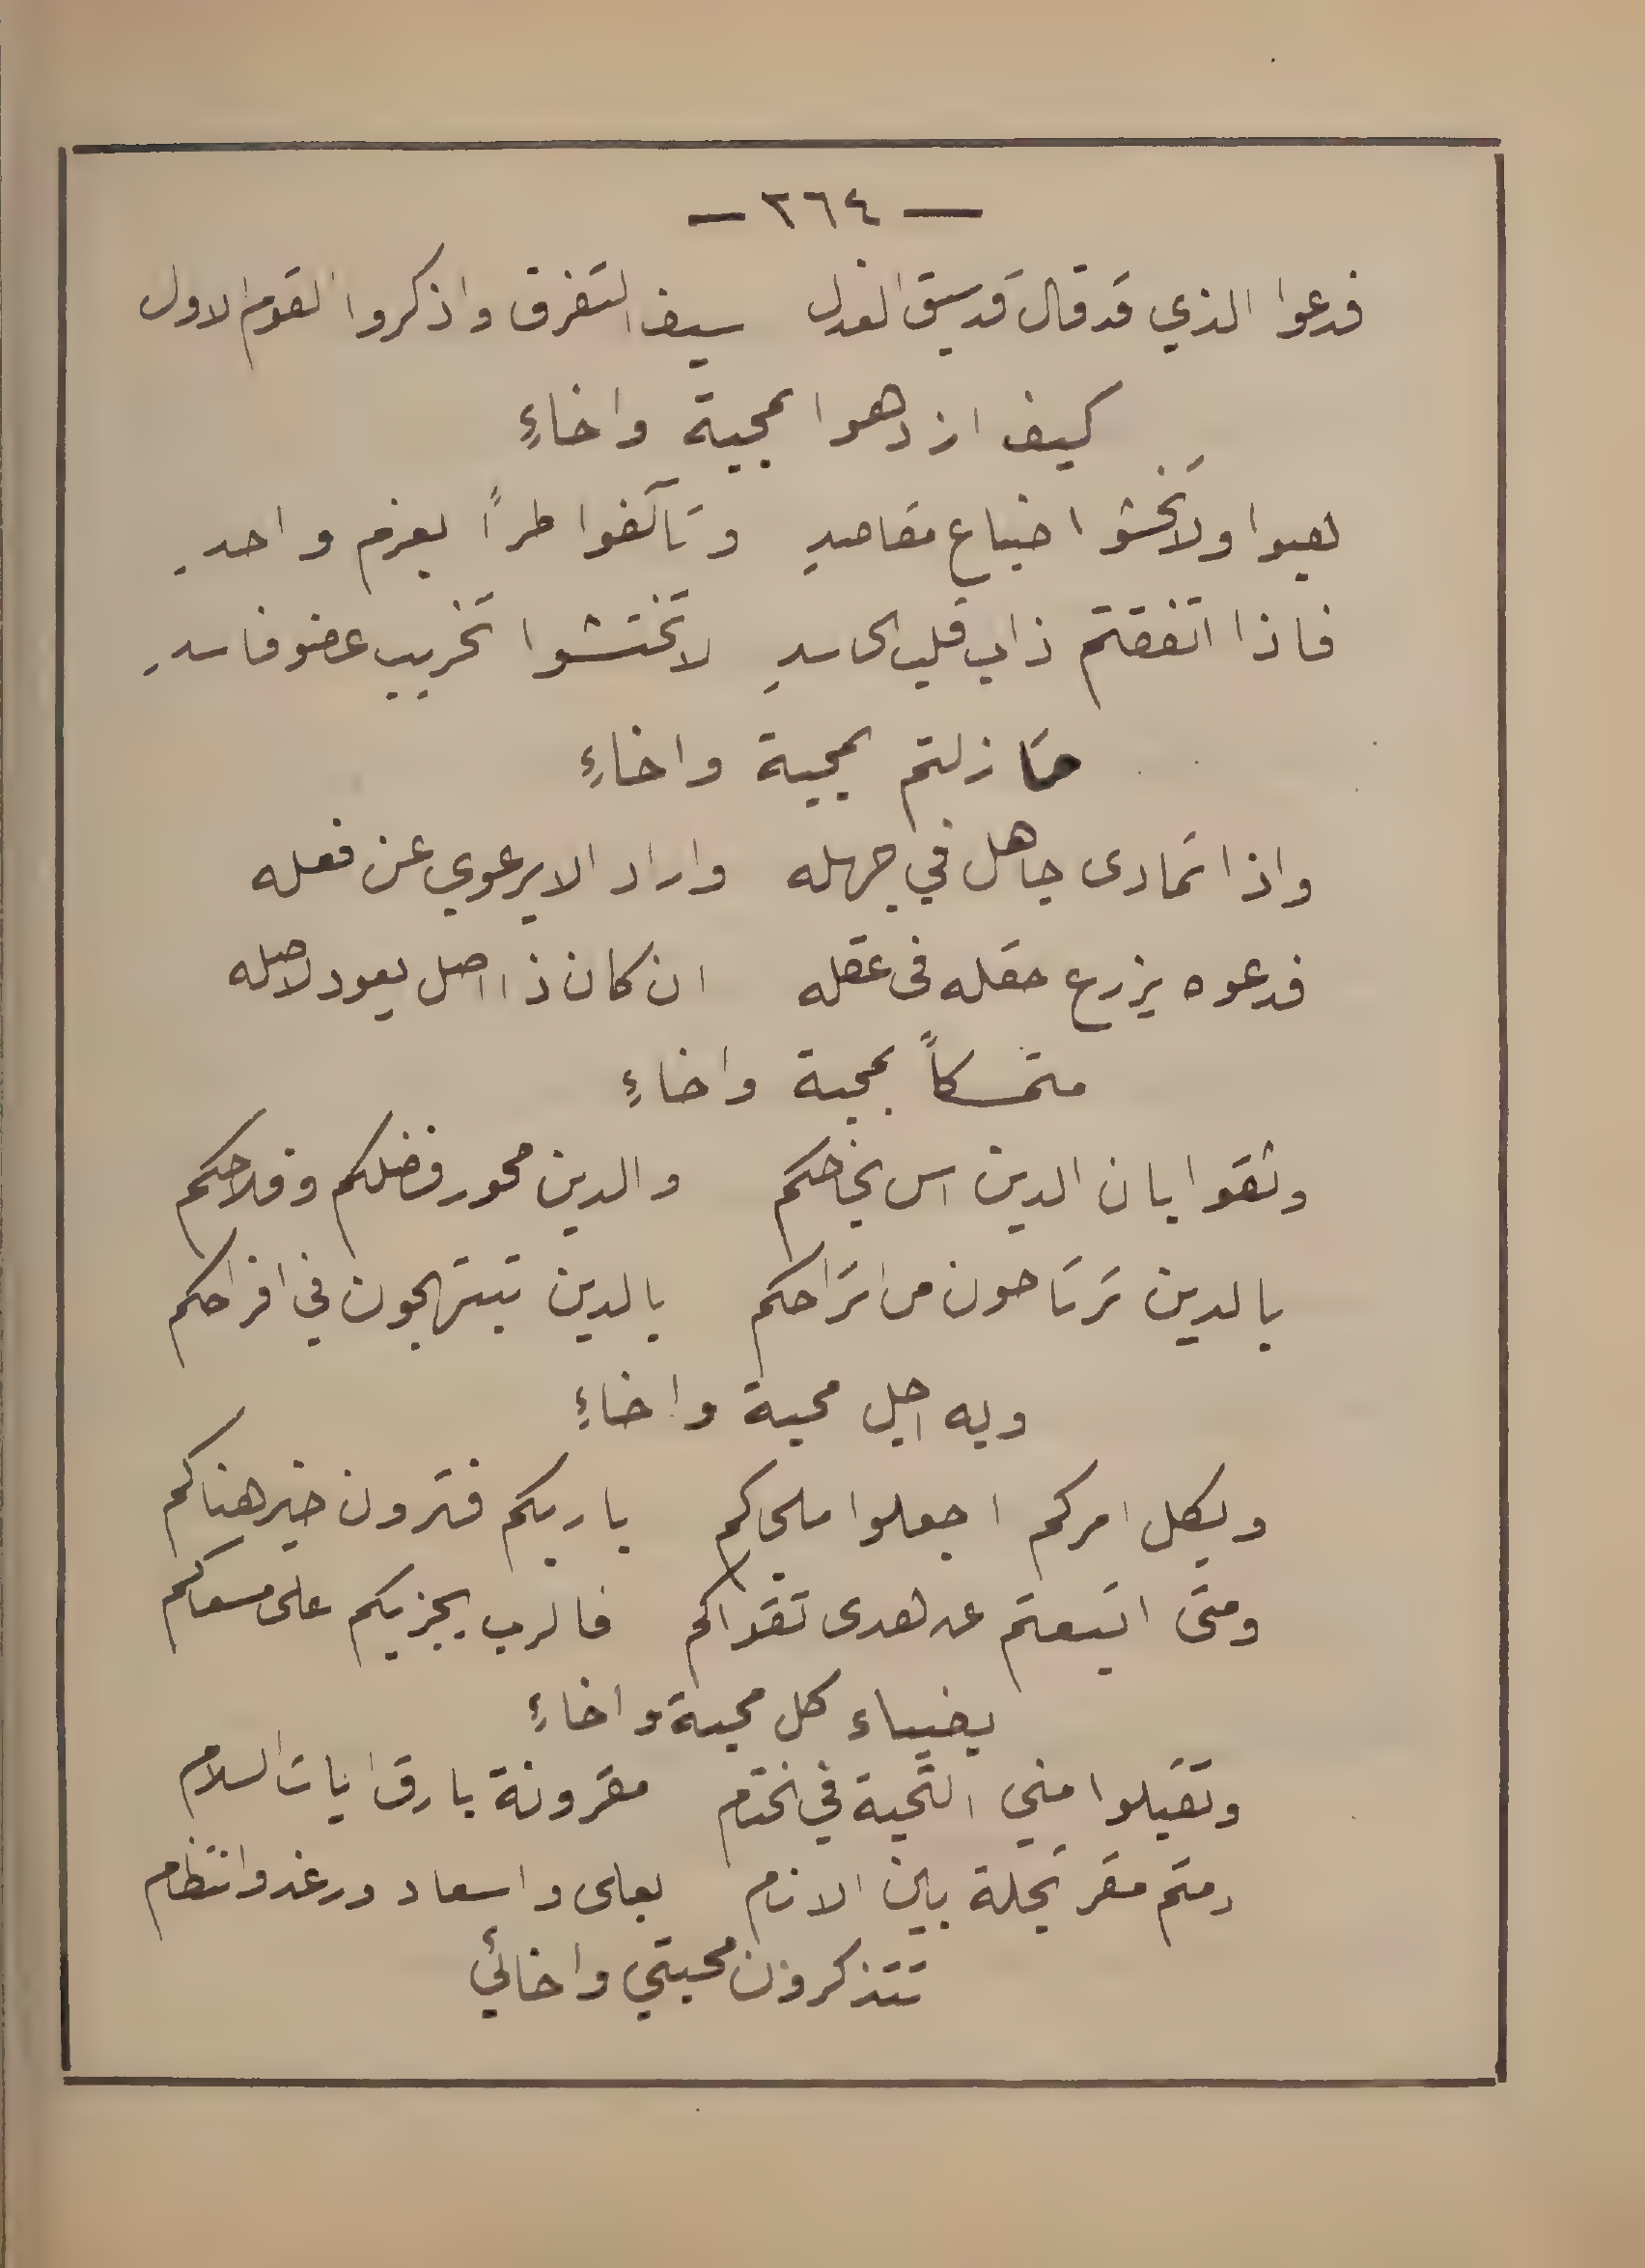 — ٢٦٤ —
فدعوا الذي قد قال قد سبق العذل سيف التفرق واذكروا القوم الاول
كيف ازدهوا بمحبة واخاءِ
هبوا ولا تخشوا ضياع مقاصدِ وتآلفوا طراً بعزم واحدِ
فاذا اتفقتم ذاب قلب الحاسدِ لا تختشوا تخريب عضو فاسدِ
ما زلتم بمحبة واخاءِ
واذا تمادى جاهل في جهله واراد الا يرعوي عن فعله
فدعوه يزرع حقله في عقله ان كان ذا اصل يعود لاصله
متمسكاً بمحبة واخاءِ
وثقوا بان الدين اس نجاحكم والدين محور فضلكم وفلاحكم
بالدين ترتاحون من اتراحكم بالدين تبتهجون في افراحكم
وبه اجل محبة واخاءِ
وبكل امركم اجعلوا ملجاكم باريكم فترون خير هناكم
ومتى اتبعتم عن هدى تقواكم فالرب يجزيكم على مسعاكم
بضياء كل محبة واخاءِ
وتقبلوا مني التحية في الختام مقرونة بارق ايات السلام
دمتم مقر تجلة بين الانام بعلى واسعاد ورغد وانتظام
تتذكرون محبتي واخائي